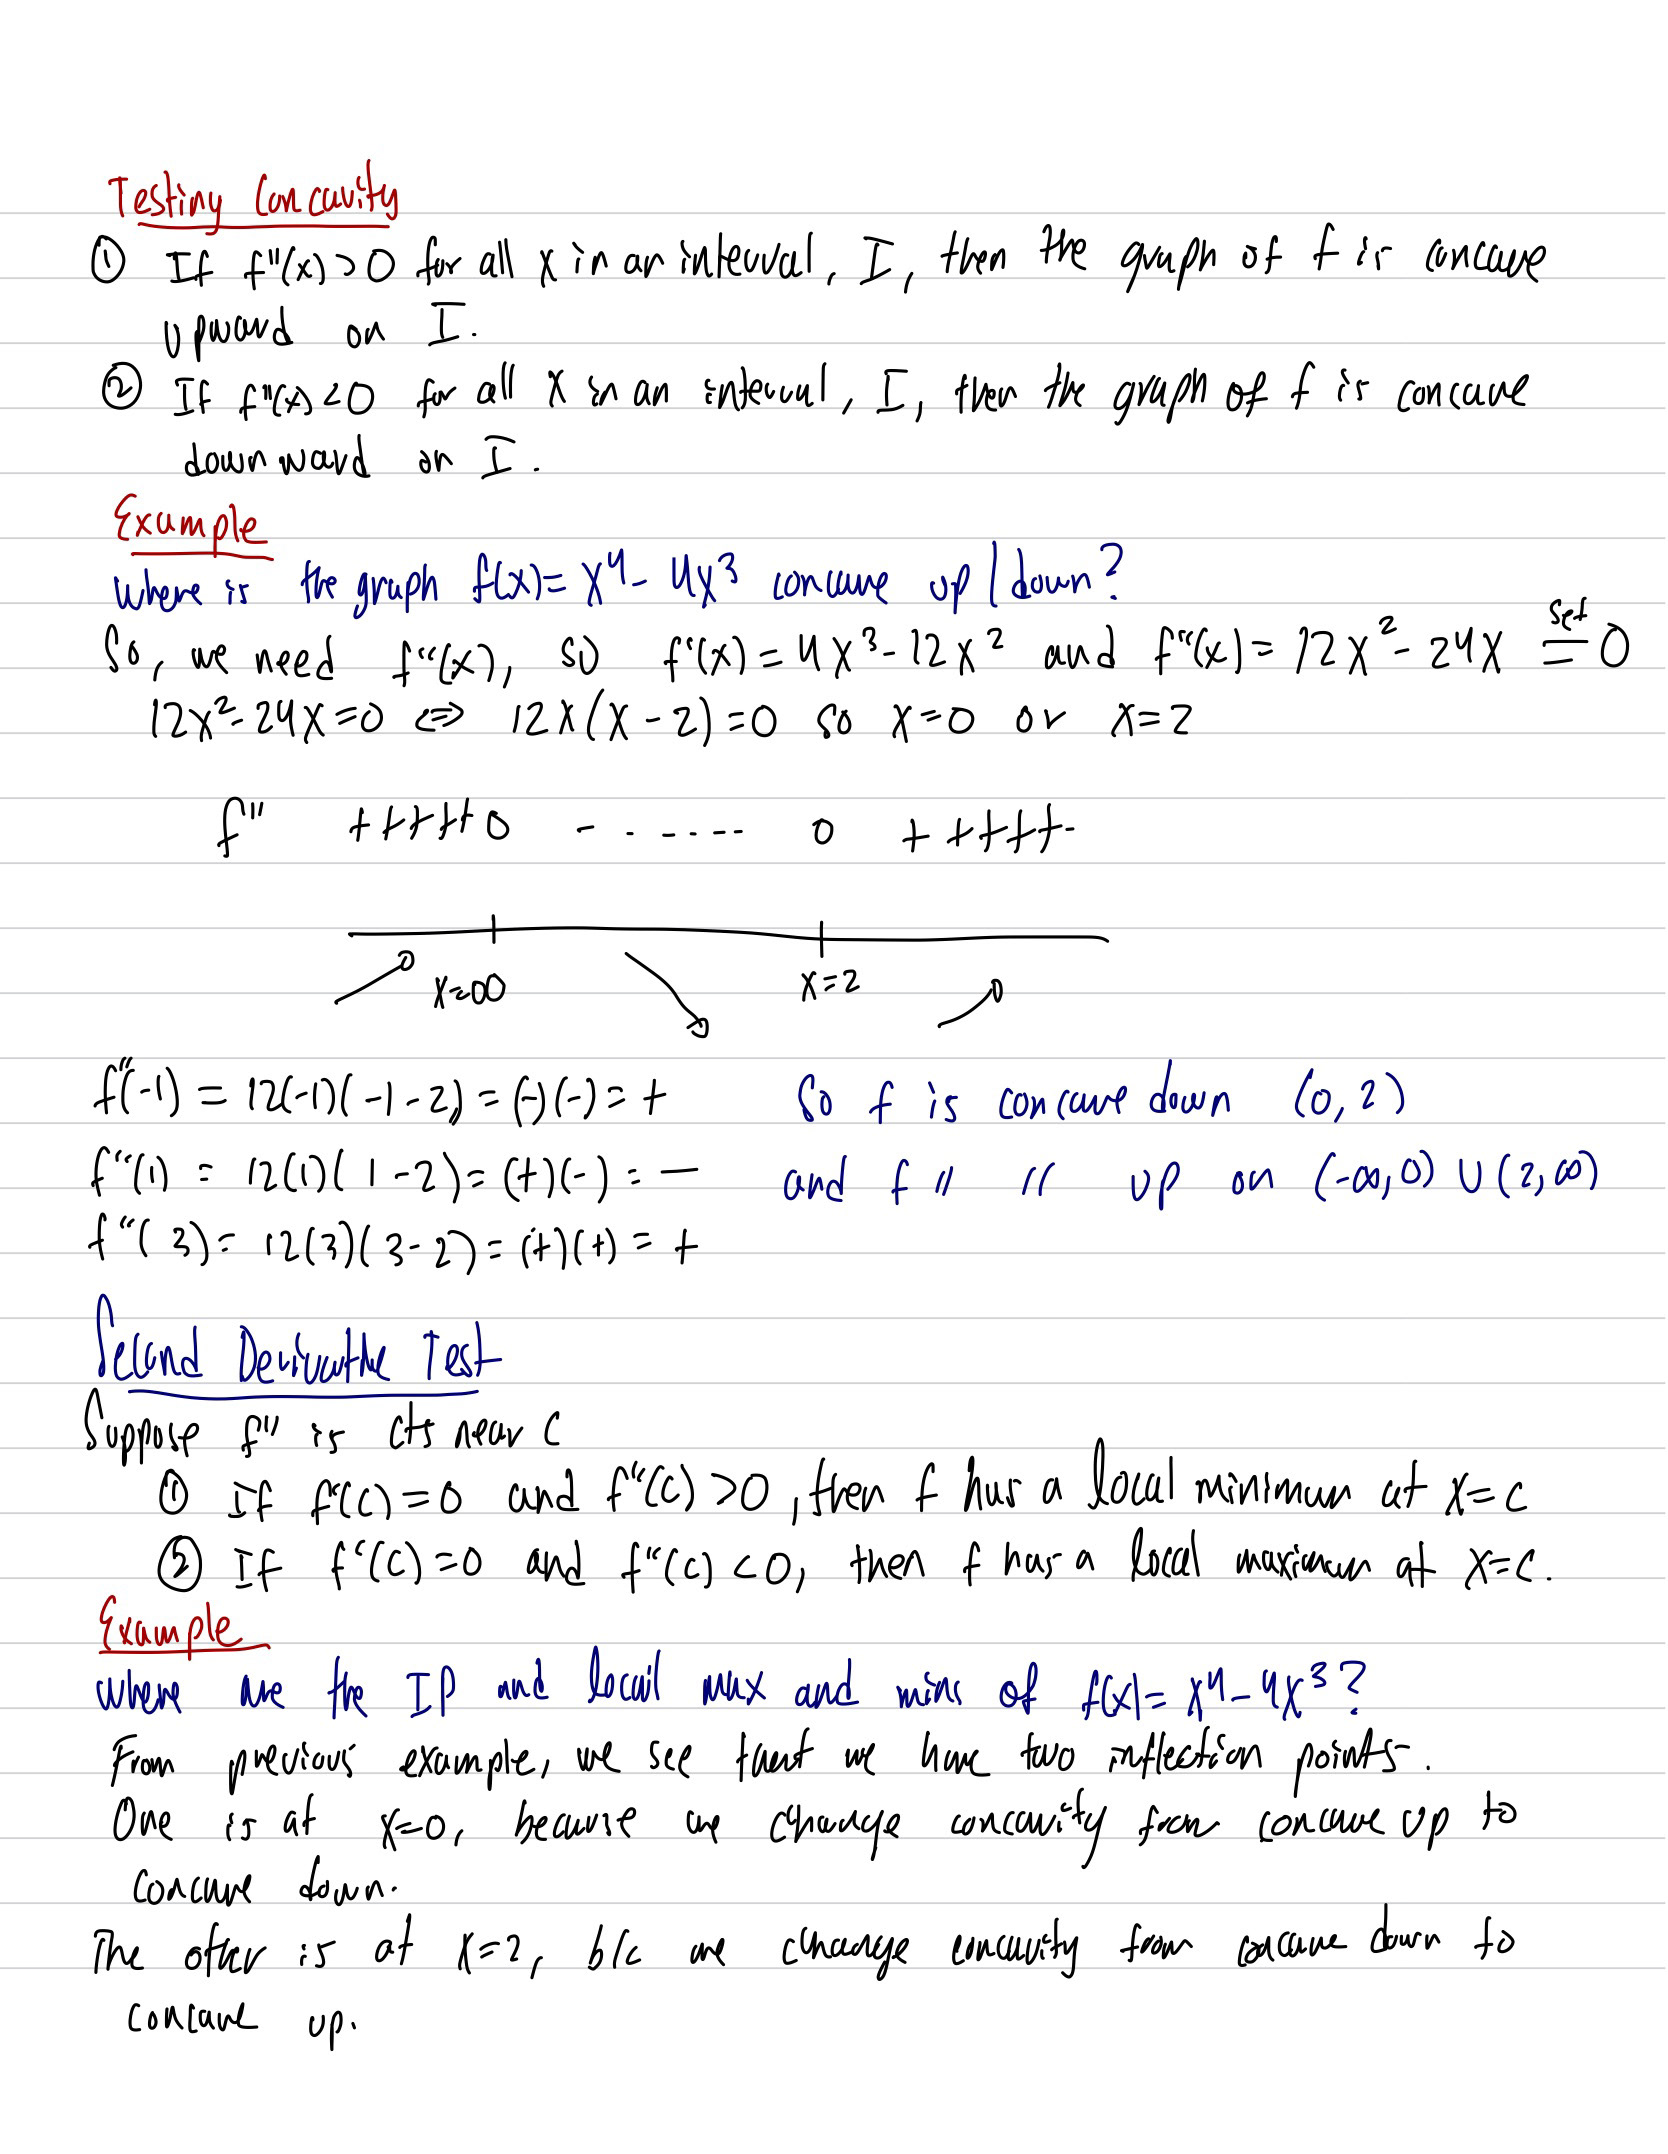 Testing Concavity
① If f''(x) > 0 for all x in an interval, I, then the graph of f is concave
upward on I.
② If f''(x) < 0 for all x in an interval, I, then the graph of f is concave
downward on I.
Example
Where is the graph f(x) = x⁴ - 4x³ concave up/down?
So, we need f''(x), so f'(x) = 4x³ - 12x² and f''(x) = 12x² - 24x set= 0
12x² - 24x = 0 ⇔ 12x(x - 2) = 0 so x = 0 or x = 2
f'' +++++ 0 - - - - - - - 0 +++++-
x=00 x=2
f''(-1) = 12(-1)(-1-2) = (-)(-) = + So f is concave down (0,2)
f''(1) = 12(1)(1-2) = (+)(-) = — and f '' '' up on (-∞,0) ∪ (2,∞)
f''(3) = 12(3)(3-2) = (+)(+) = +
Second Derivative Test
Suppose f'' is cts near c
① If f'(c) = 0 and f''(c) > 0, then f has a local minimum at x = c
② If f'(c) = 0 and f''(c) < 0, then f has a local maximum at x = c.
Example
Where are the IP and local max and mins of f(x) = x⁴ - 4x³?
From previous example, we see that we have two inflection points.
One is at x=0, because we change concavity from concave up to
concave down.
The other is at x=2, b/c we change concavity from concave down to
concave up.